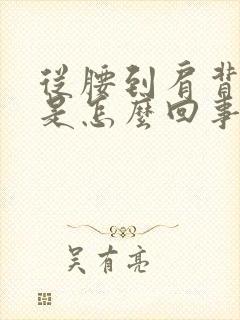 從腰到肩背
是怎麼回事
吳有亮